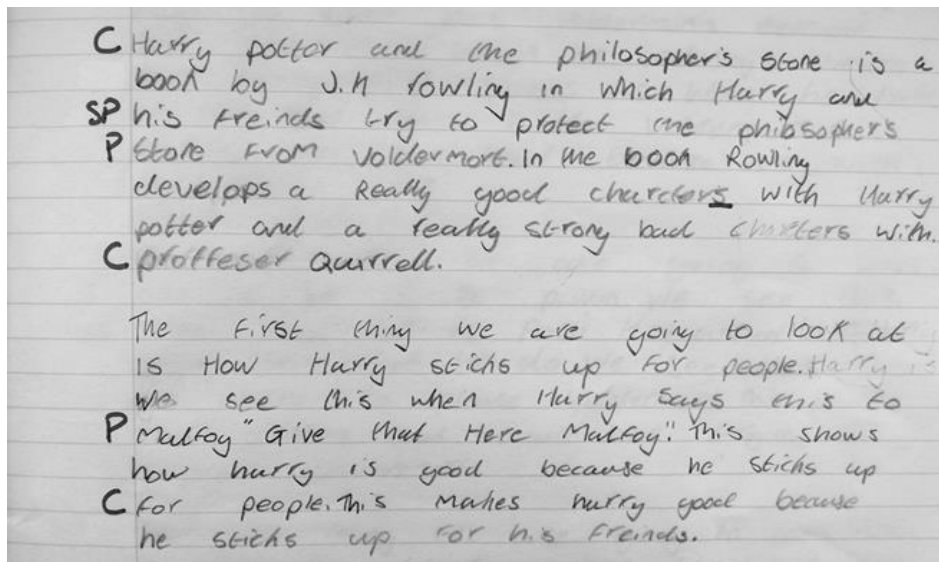 C Harry potter and the philosopher's stone is a
book by J.k rowling in which Harry and
SP his freinds try to protect the philosophers
P stone from Voldermort. In the book Rowling
develops a Really good charcters with Harry
potter and a really strong bad charcters with.
C proffeser Quirrell.
The first thing we are going to look at
is How Harry sticks up for people. Harry is
We see this when Harry Says this to
P Malfoy "Give that Here Malfoy". This shows
how harry is good because he sticks up
C for people. This makes harry good because
he sticks up for his freinds.